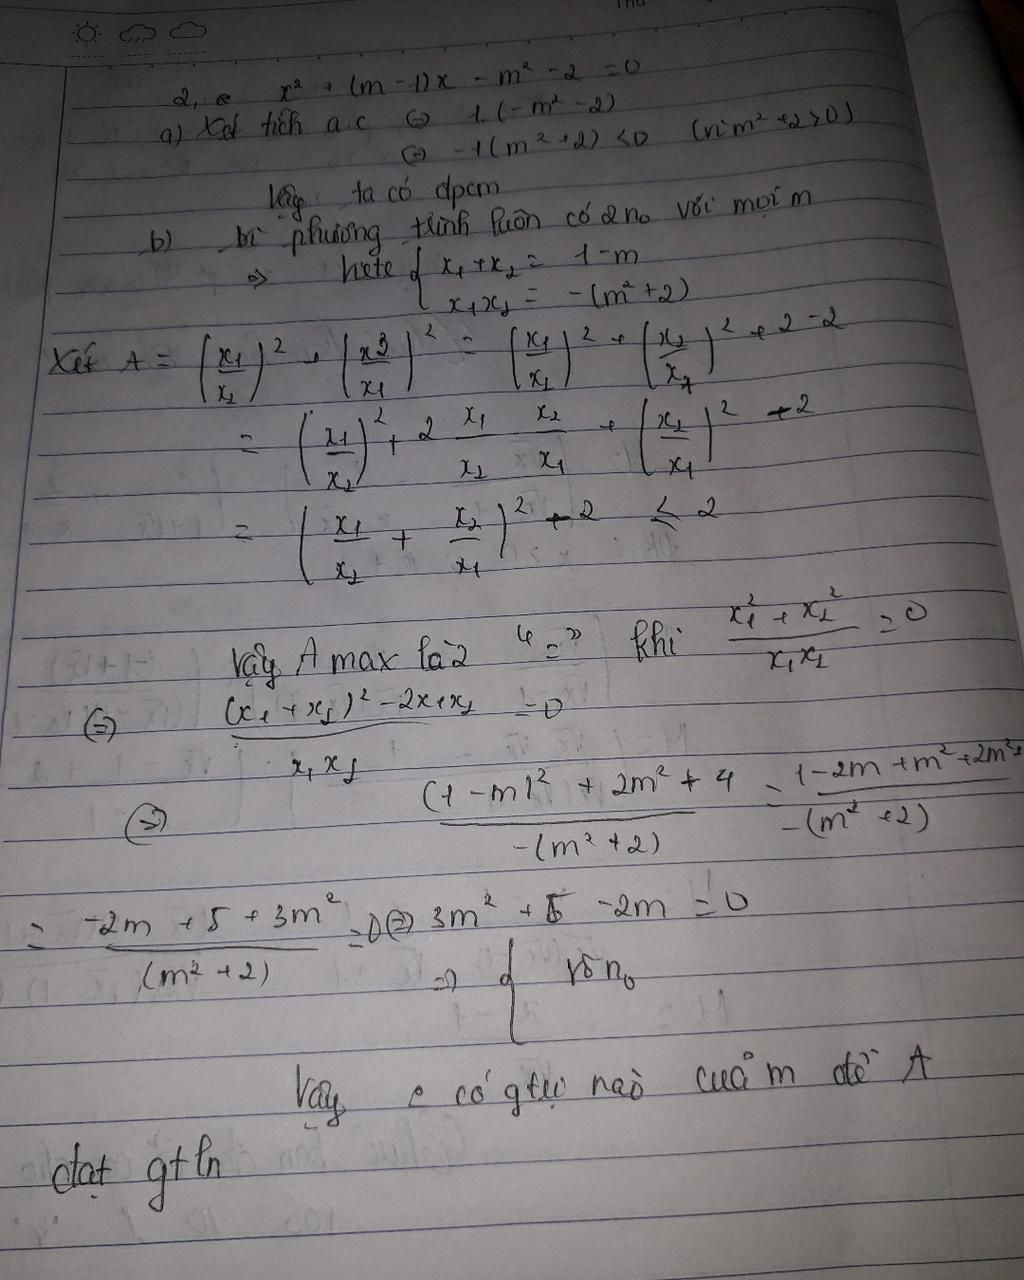 THU
2, x² + (m-1)x - m² - 2 = 0
a) Xét tích a.c ⇔ 1.(-m² - 2)
⇔ -1(m² + 2) < 0 (vì m² + 2 > 0)
Vậy ta có đpcm
b) Vì phương trình luôn có 2 n₀ với mọi m
⇒ { x₁ + x₂ = 1 - m
x₁x₂ = -(m² + 2)
Xét A = (x₁/x₂)² + (x2/x₁)² = (x₁/x₂)² + (x₂/x₁)² + 2 - 2
= (x₁/x₂)² + 2 x₁/x₂ x₂/x₁ + (x₂/x₁)² - 2
= (x₁/x₂ + x₂/x₁)² - 2 ≤ 2
Vậy A max là 2 "=" khi (x₁² + x₂²)/(x₁x₂) = 0
⇔ ((x₁ + x₂)² - 2x₁x₂)/(x₁x₂) = 0
⇔ ((1 - m)² + 2m² + 4)/(-(m² + 2)) = (1 - 2m + m² + 2m² +)/(-(m² + 2))
= (-2m + 5 + 3m²)/((m² + 2)) = 0 ⇔ 3m² + 5 - 2m = 0
⇒ { vô n₀
Vậy có gtrị nào của m để A
đạt gtln